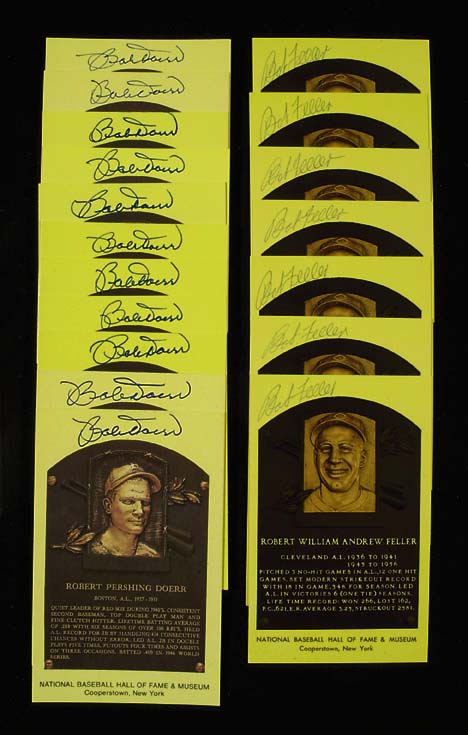 Bob Doerr
Bob Doerr
Bob Doerr
Bob Doerr
Bob Doerr
Bob Doerr
Bob Doerr
Bob Doerr
Bob Doerr
Bob Doerr
Bob Doerr
ROBERT PERSHING DOERR
BOSTON, A.L. 1937-1951
QUIET LEADER OF RED SOX DURING 1940'S. CONSISTENT
SECOND BASEMAN, TOP DOUBLE PLAY MAN AND
FINE CLUTCH HITTER. LIFETIME BATTING AVERAGE
OF .288 WITH SIX SEASONS OF OVER 100 RBI'S. HELD
A.L. RECORD FOR 2B BY HANDLING 414 CONSECUTIVE
CHANCES WITHOUT ERROR. LED A.L. 2B IN DOUBLE
PLAYS FIVE TIMES, PUTOUTS FOUR TIMES AND ASSISTS
ON THREE OCCASIONS. BATTED .409 IN 1946 WORLD
SERIES.
NATIONAL BASEBALL HALL OF FAME & MUSEUM
Cooperstown, New York
Bob Feller
Bob Feller
Bob Feller
Bob Feller
Bob Feller
Bob Feller
Bob Feller
ROBERT WILLIAM ANDREW FELLER
CLEVELAND A.L. 1936 TO 1941
1945 TO 1956
PITCHED 3 NO-HIT GAMES IN A.L., 12 ONE HIT
GAMES. SET MODERN STRIKEOUT RECORD
WITH 18 IN GAME, 348 FOR SEASON. LED
A.L. IN VICTORIES 6 (ONE TIE) SEASONS.
LIFE TIME RECORD: WON 266, LOST 162,
P.C. .621, E.R. AVERAGE 3.25, STRUCK OUT 2581.
NATIONAL BASEBALL HALL OF FAME & MUSEUM
Cooperstown, New York